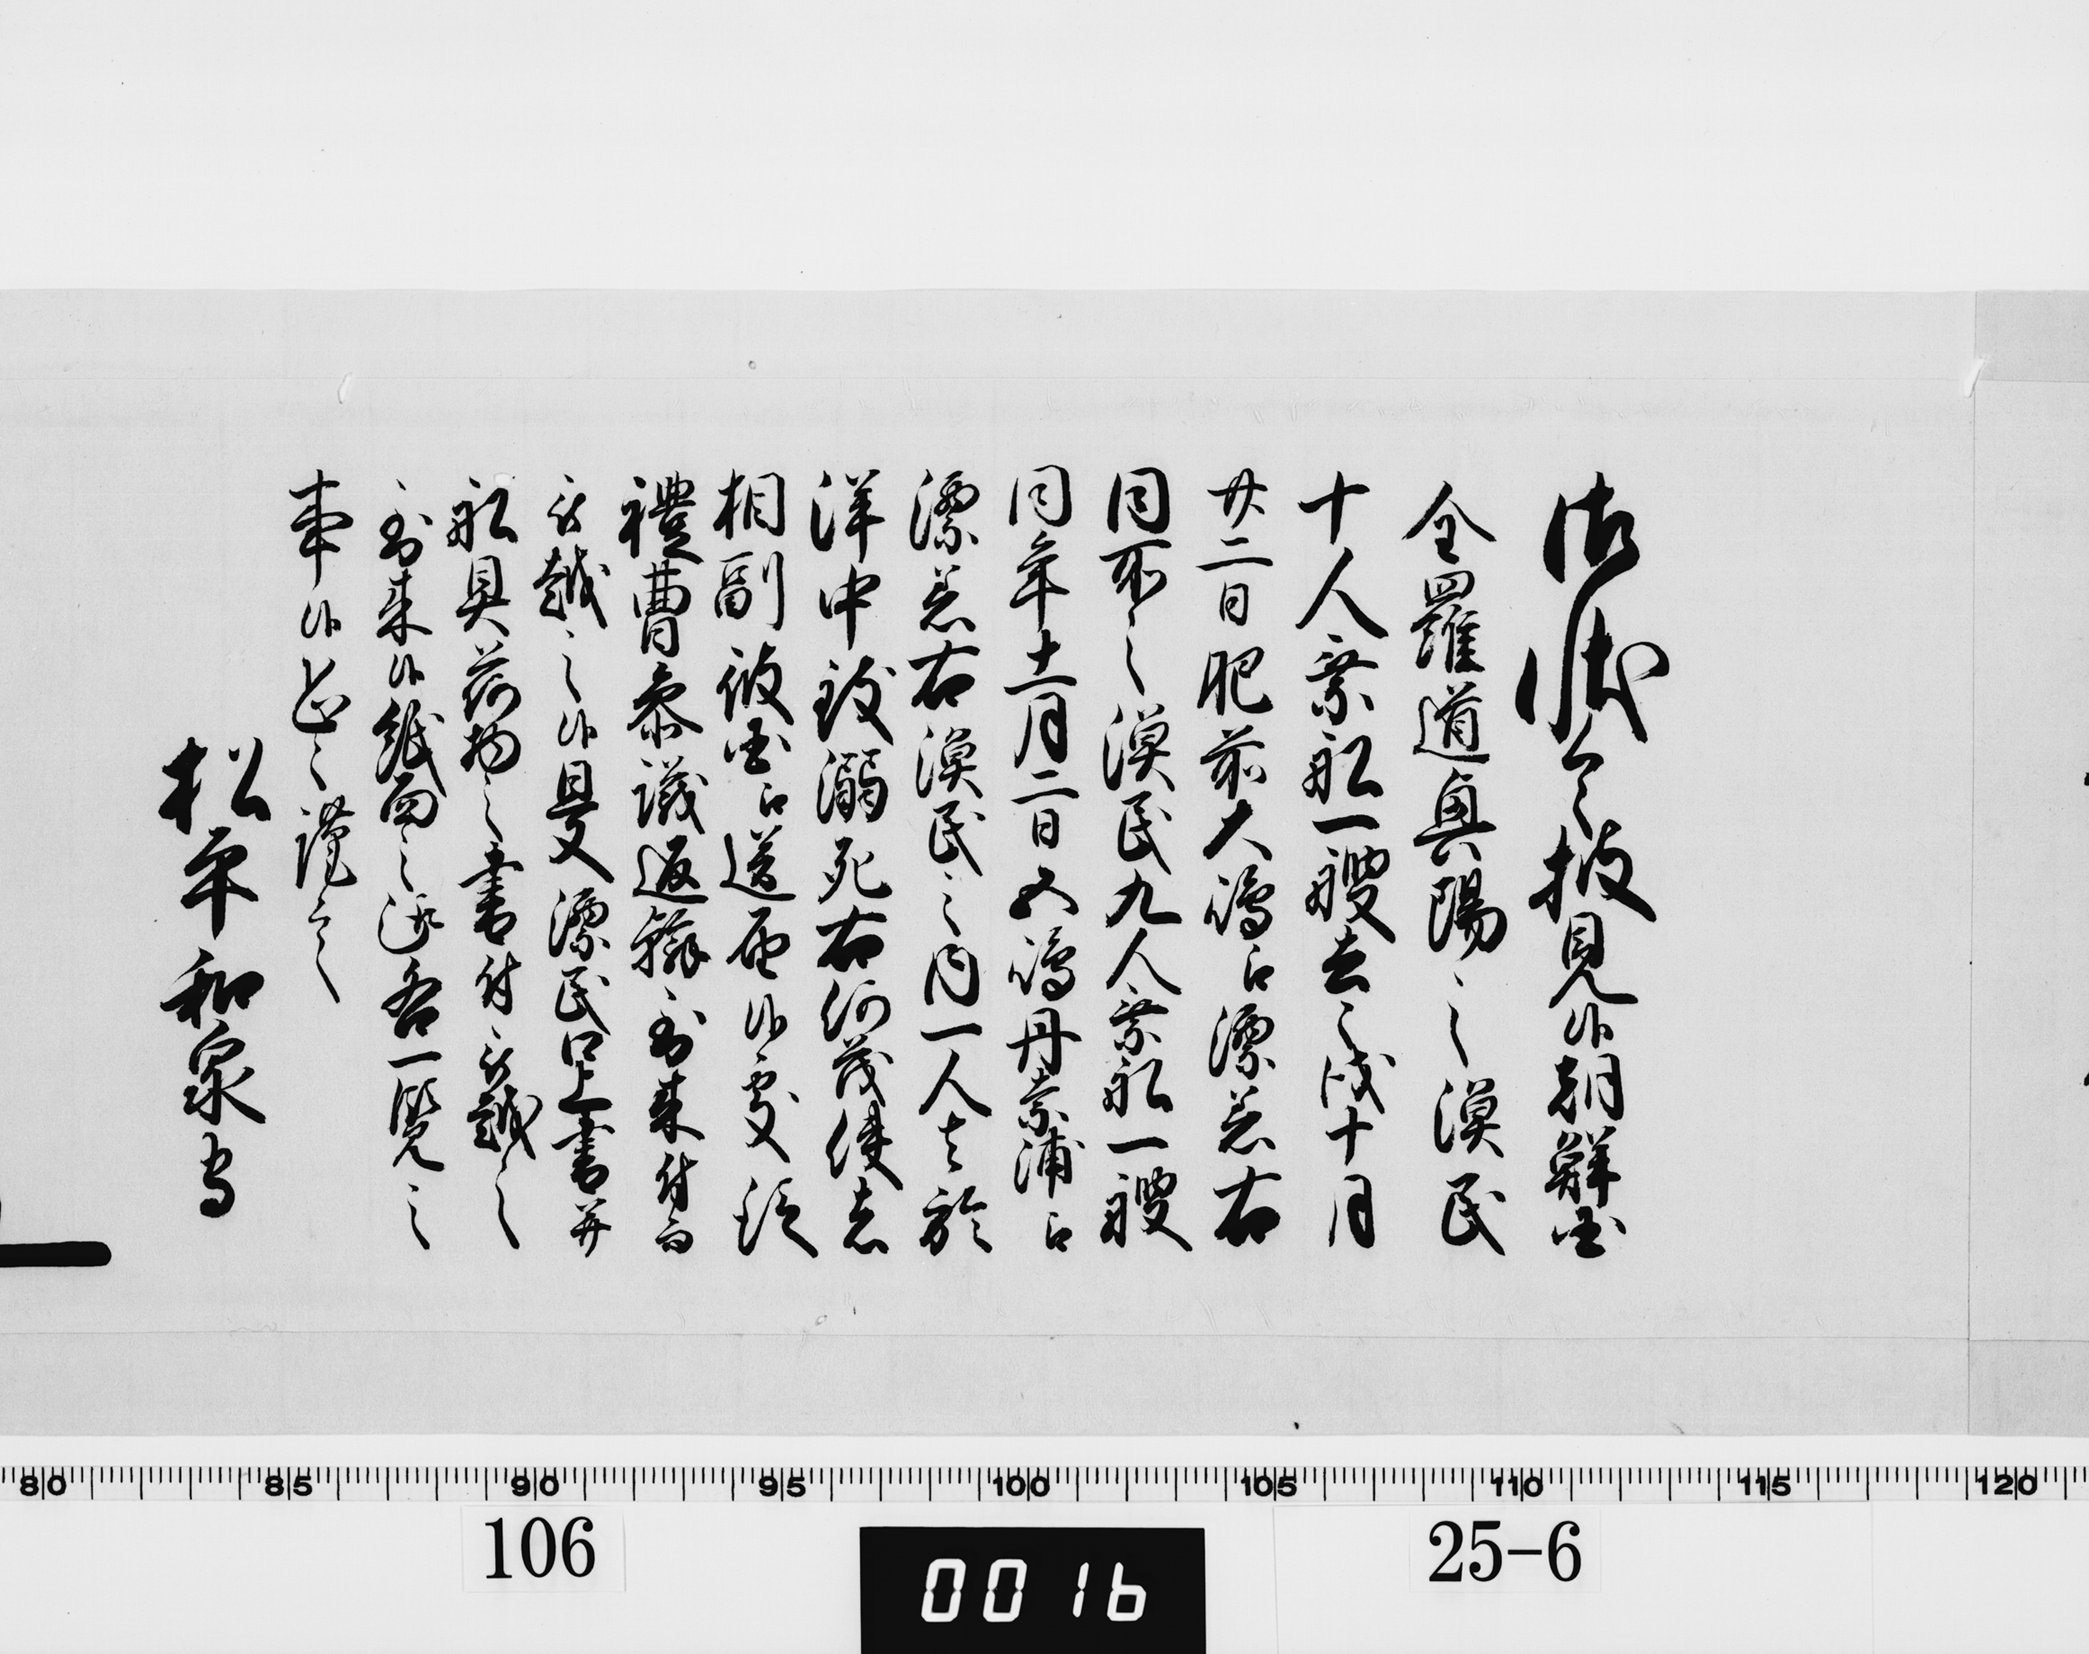 御状令披見候朝鮮国
全羅道興陽之漢民
十人乗船一艘去之戌十月
廿二日肥前大嶋江漂着右
同所之漢民九人乗船一艘
同年十一月二日五嶋丹奈浦江
漂着右漢民之内一人者於
洋中致溺死右何茂使者
相副彼国江送届候處従
禮曹参議返翰到来付而
被越之候且又漂民口上書并
船具荷物之書付被越之
到来候紙面之通各一覧之
事候恐々謹言
松平和泉守
80 85 90 95 100 105 110 115 120
106
0016
25-6